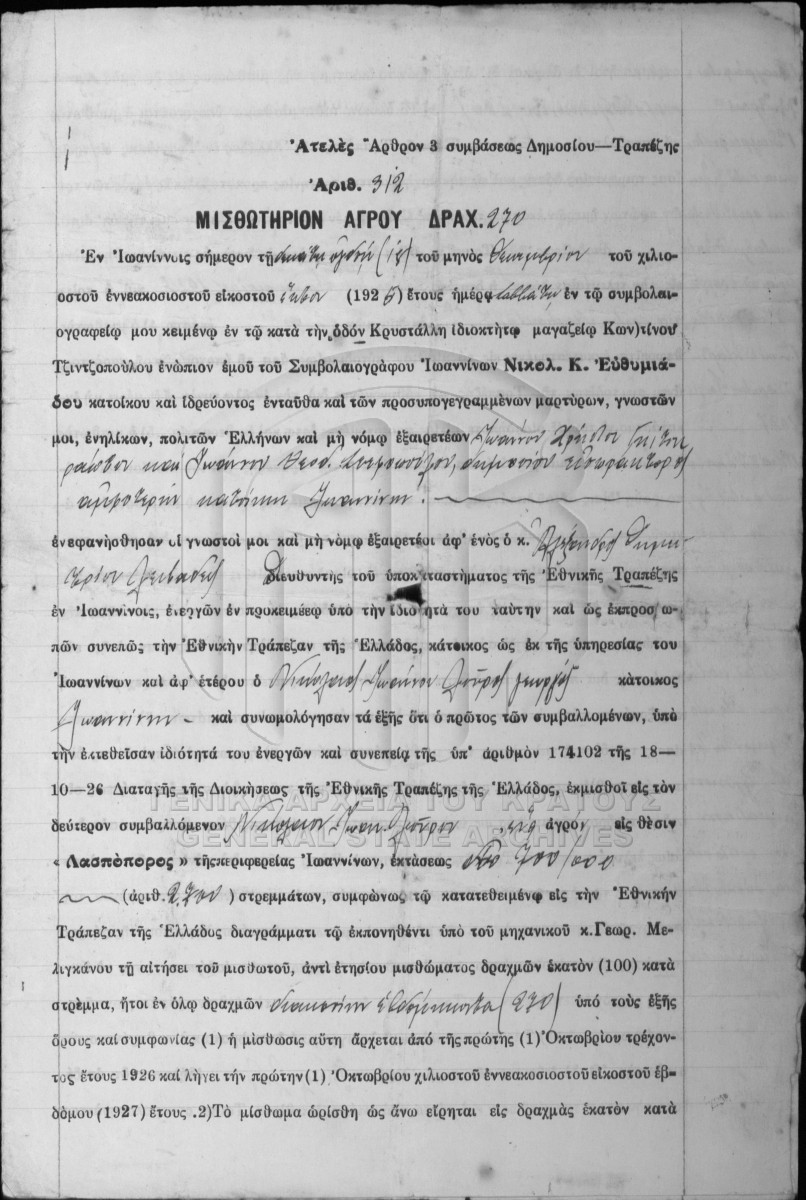 Ἀτελὲς Ἄρθρον 3 συμβάσεως Δημοσίου—Τραπέζης
Ἀριθ. 312
ΜΙΣΘΩΤΗΡΙΟΝ ΑΓΡΟΥ ΔΡΑΧ. 270
Ἐν Ἰωανίννοις σήμερον τῇ δεκάτῃ ὀγδόῃ (18) τοῦ μηνὸς Δεκεμβρίου τοῦ χιλιο-
οστοῦ ἐννεακοσιοστοῦ εἰκοστοῦ ἕκτου (1926) ἔτους ἡμέρᾳ Σαββάτῳ ἐν τῷ συμβολαι-
ογραφείῳ μου κειμένῳ ἐν τῷ κατὰ τὴν ὁδόν Κρυστάλλη ἰδιοκτήτῳ μαγαζείῳ Κων)τίνου
Τζιντζοπούλου ἐνώπιον ἐμοῦ τοῦ Συμβολαιογράφου Ἰωαννίνων Νικολ. Κ. Εὐθυμιά-
δου κατοίκου καὶ ἱδρεύοντος ἐνταῦθα καὶ τῶν προσυπογεγραμμένων μαρτύρων, γνωστῶν
μοι, ἐνηλίκων, πολιτῶν Ἑλλήνων καὶ μὴ νόμῳ ἐξαιρετέων Ἰωάννου Χρήστου
καὶ Ἰωάννου Θεοδ. δημοσίου εἰσπράκτορος
ἀμφοτέρων κατοίκων Ἰωαννίνων.
ἐνεφανήσθησαν οἱ γνωστοί μοι καὶ μὴ νόμῳ ἐξαιρετέοι ἀφ' ἑνὸς ὁ κ. Ἀλέξανδρος Δημη-
τρίου Λειβαδεὺς Διευθυντὴς τοῦ ὑποκαταστήματος τῆς Ἐθνικῆς Τραπέζης
ἐν Ἰωαννίνοις, ἐνεργῶν ἐν προκειμέεῳ ὑπὸ τὴν ἰδιότητά του ταύτην καὶ ὡς ἐκπροσω-
πῶν συνεπῶς τὴν Ἐθνικὴν Τράπεζαν τῆς Ἑλλάδος, κάτοικος ὡς ἐκ τῆς ὑπηρεσίας του
Ἰωαννίνων καὶ ἀφ' ἑτέρου ὁ Νικόλαος Ἰωάννου Λοῦρος γεωργὸς κάτοικος
Ἰωαννίνων καὶ συνωμολόγησαν τὰ ἑξῆς ὅτι ὁ πρῶτος τῶν συμβαλλομένων, ὑπὸ
τὴν ἐκτεθεῖσαν ἰδιότητά του ἐνεργῶν καὶ συνεπείᾳ τῆς ὑπ' ἀριθμὸν 174102 τῆς 18—
10—26 Διαταγῆς τῆς Διοικήσεως τῆς Ἐθνικῆς Τραπέζης τῆς Ἑλλάδος, ἐκμισθοῖ εἰς τὸν
ΓΕΝΙΚΑ ΑΡΧΕΙΑ ΤΟΥ ΚΡΑΤΟΥΣ
δεύτερον συμβαλλόμενον Νικόλαον Ἰωάν. Λοῦρον ἀγρὸν εἰς θέσιν
GENERAL STATE ARCHIVES
« Λασπόπορος » τῆς περιφερείας Ἰωαννίνων, ἐκτάσεως δύο 700/000
(ἀριθ. 2.700) στρεμμάτων, συμφώνως τῷ κατατεθειμένῳ εἰς τὴν Ἐθνικήν
Τράπεζαν τῆς Ἑλλάδος διαγράμματι τῷ ἐκπονηθέντι ὑπὸ τοῦ μηχανικοῦ κ. Γεωρ. Με-
λιγκάνου τῇ αἰτήσει τοῦ μισθωτοῦ, ἀντὶ ἐτησίου μισθώματος δραχμῶν ἑκατὸν (100) κατὰ
στρέμμα, ἤτοι ἐν ὅλῳ δραχμῶν διακοσίων ἑβδομήκοντα (270) ὑπὸ τοὺς ἑξῆς
ὅρους καὶ συμφωνίας (1) ἡ μίσθωσις αὕτη ἄρχεται ἀπὸ τῆς πρώτης (1) Ὀκτωβρίου τρέχον-
τος ἔτους 1926 καὶ λήγει τήν πρώτην (1) Ὀκτωβρίου χιλιοστοῦ ἐννεακοσιοστοῦ εἰκοστοῦ ἑβ-
δόμου (1927) ἔτους .2) Τὸ μίσθωμα ὡρίσθη ὡς ἄνω εἴρηται εἰς δραχμὰς ἑκατὸν κατὰ